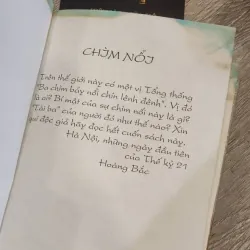 CHÌM NỔI
Trên thế giới này có một vị Tổng thống
"Ba chìm bảy nổi chín lênh đênh". Vị đó
là ai? Bí mật của sự chìm nổi này là gì?
"Tài ba" của người đó như thế nào? Xin
quí độc giả hãy đọc hết cuốn sách này.
Hà Nội, những ngày đầu tiên
của Thế kỷ 21
Hoàng Bắc